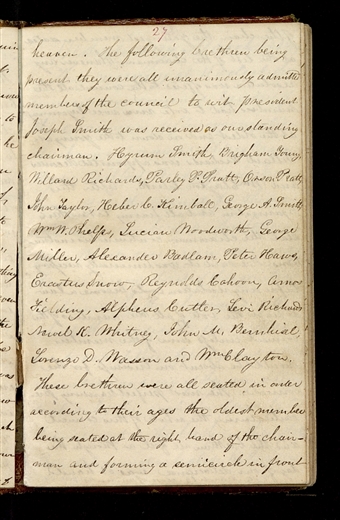 27
heaven. The following brethren being
present they were all unanimously admitted
members of the council to wit president
Joseph Smith was received as our standing
chairman. Hyrum Smith, Brigham Young
Willard Richards, Parley P. Pratt, Orson Pratt
John Taylor, Heber C. Kimball, George A. Smith
Wm W. Phelps, Lucien Woodworth, George
Miller, Alexander Badlam, Peter Haws,
Erastus Snow, Reynolds Cahoon, Amos
Fielding, Alpheus Cutler, Levi Richards
Newel K. Whitney, John M. Bernhisel,
Lorenzo D. Wasson and Wm Clayton.
These brethren were all seated in order
according to their ages the oldest member
being seated at the right hand of the chair-
man and forming a semicircle in front